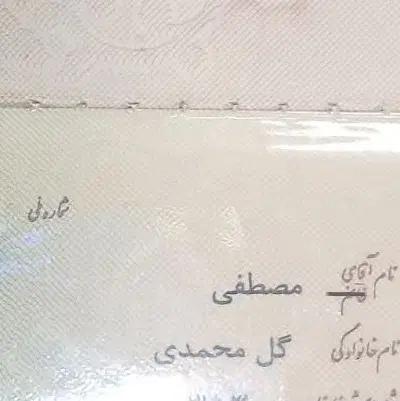 شماره ملی
نام آقای خانم مصطفی
نام خانوادگی گل محمدی